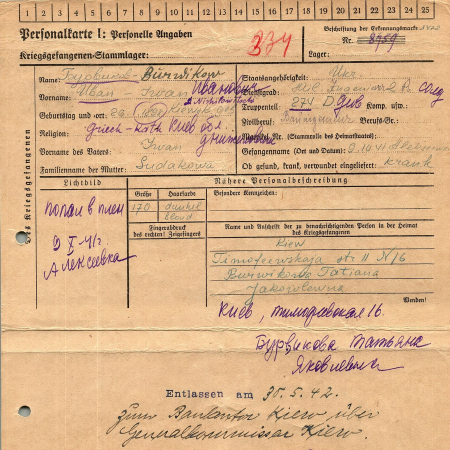 1 2 3 4 5 6 7 8 9 10 11 12 13 14 15 16 17 18 19 20 21 22 23 24 25
Personalkarte I: Personelle Angaben
Kriegsgefangenen-Stammlager:
334
Beschriftung der Erkennungsmarke
Nr. 8759
Lager:
Des Kriegsgefangenen
Name: Burwikow
Vorname: Iwan Иванович
Geburtstag und -ort:
Religion: Griech-Kath Киев обл.
Vorname des Vaters: Iwan
Familienname der Mutter: Sudakowa
Staatsangehörigkeit: Ukr.
Dienstgrad: Mil. Ingenieur
Truppenteil: 274 D Komp. usw.:
Zivilberuf: Bauingenieur Berufs-Gr.:
Matrikel Nr. (Stammrolle des Heimatstaates):
Gefangennahme (Ort und Datum): 9.10.41
Ob gesund, krank, verwundet eingeliefert: krank
Lichtbild
попал в плен
9 X-41г
Алексеевка
Nähere Personalbeschreibung
Größe Haarfarbe Besondere Kennzeichen:
170 dunkel
blond
Fingerabdruck
des rechten! Zeigefingers
Name und Anschrift der zu benachrichtigenden Person in der Heimat
des Kriegsgefangenen
Kiew
Timofeewskaja str II N 16
Burwikowa Tatiana
Jakowlewna
Wenden!
Киев, тимофеевская 16.
Бурвикова Татьяна
Яковлевна
Entlassen am 30.5.42.
Zum Baukontor Kiew über
Generalkommissar Kiew.